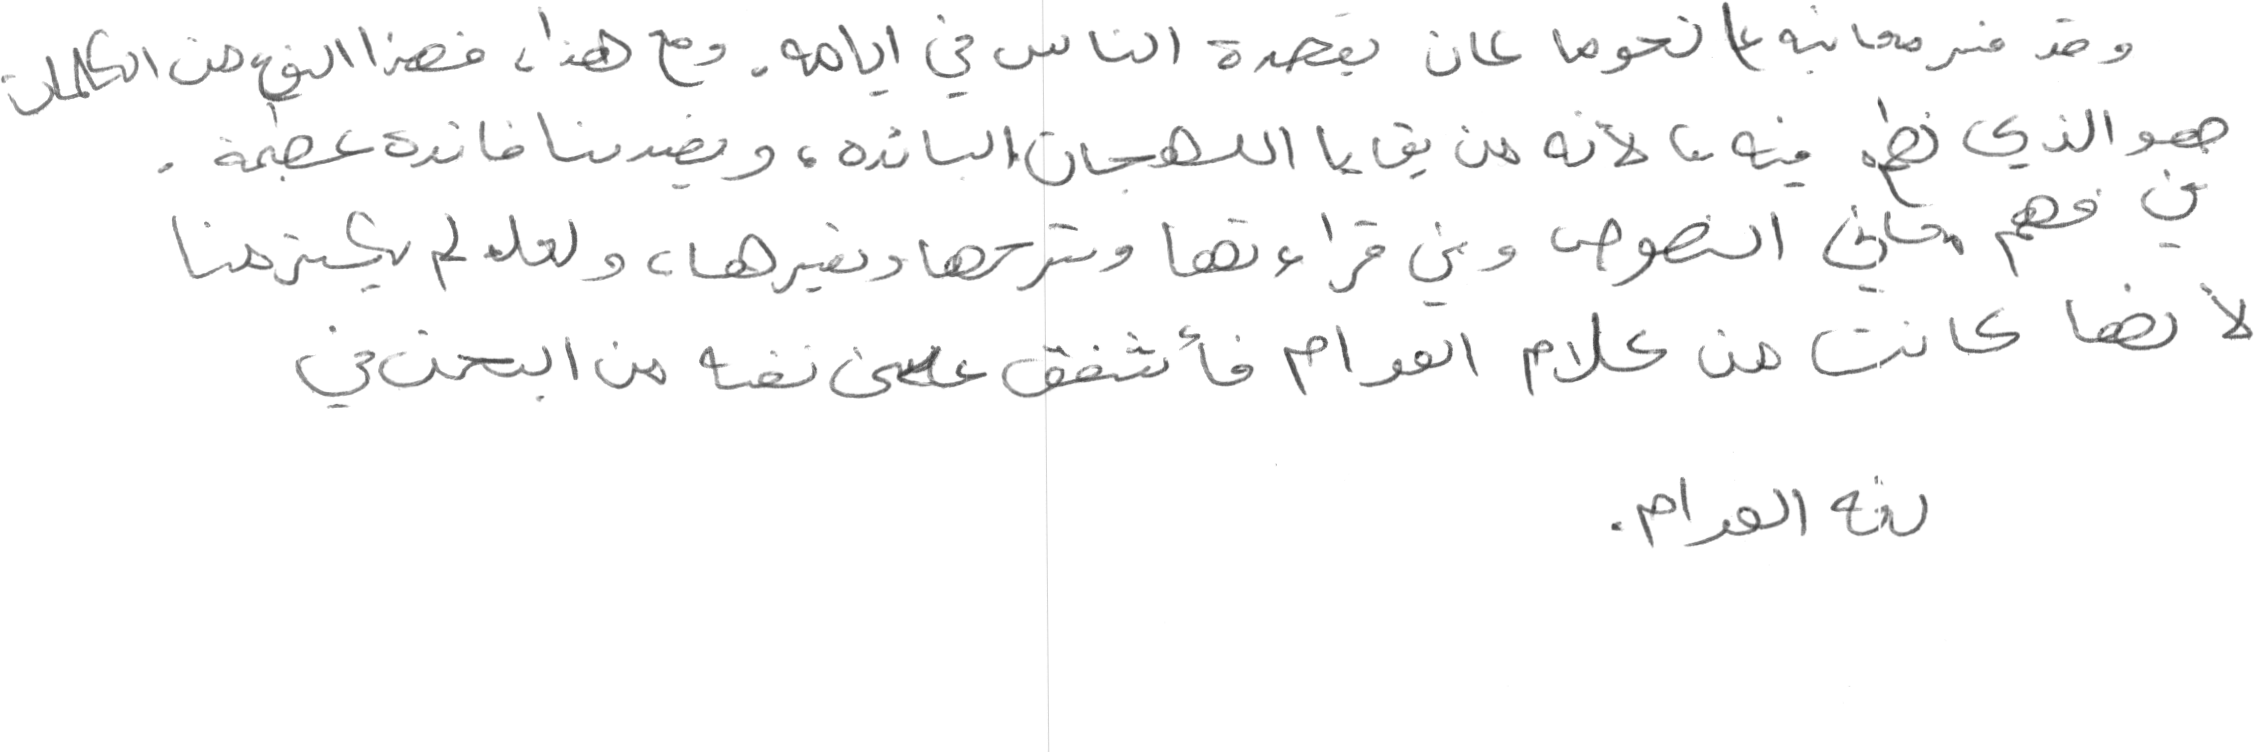 وقد فسر معانيه على نحو ما كان يقصده الناس في ايامه. ومع هذا، فهذا النوع من الكلمات
هو الذي نطمع فيه، لأنه من بقايا اللهجات البائدة، ويفيدنا فائدة عظيمة.
في فهم معاني النصوص وفي قراءتها وشرحها وغيرها، ولعله لم يكثر منا
لأنها كانت من كلام العوام فأشفق على نفسه من البحث في
لغة العوام.